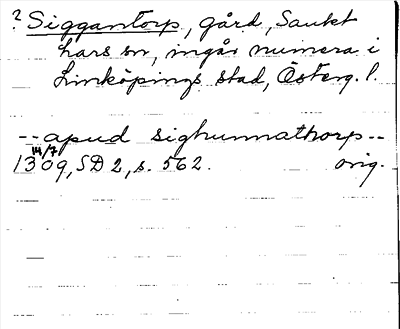 ? Siggantorp, gård, Sankt
Lars sn, ingår numera i
Linköpings stad, Österg. l.
-- apud sighunnathorp --
14/7
1309, SD 2, s. 562. orig.